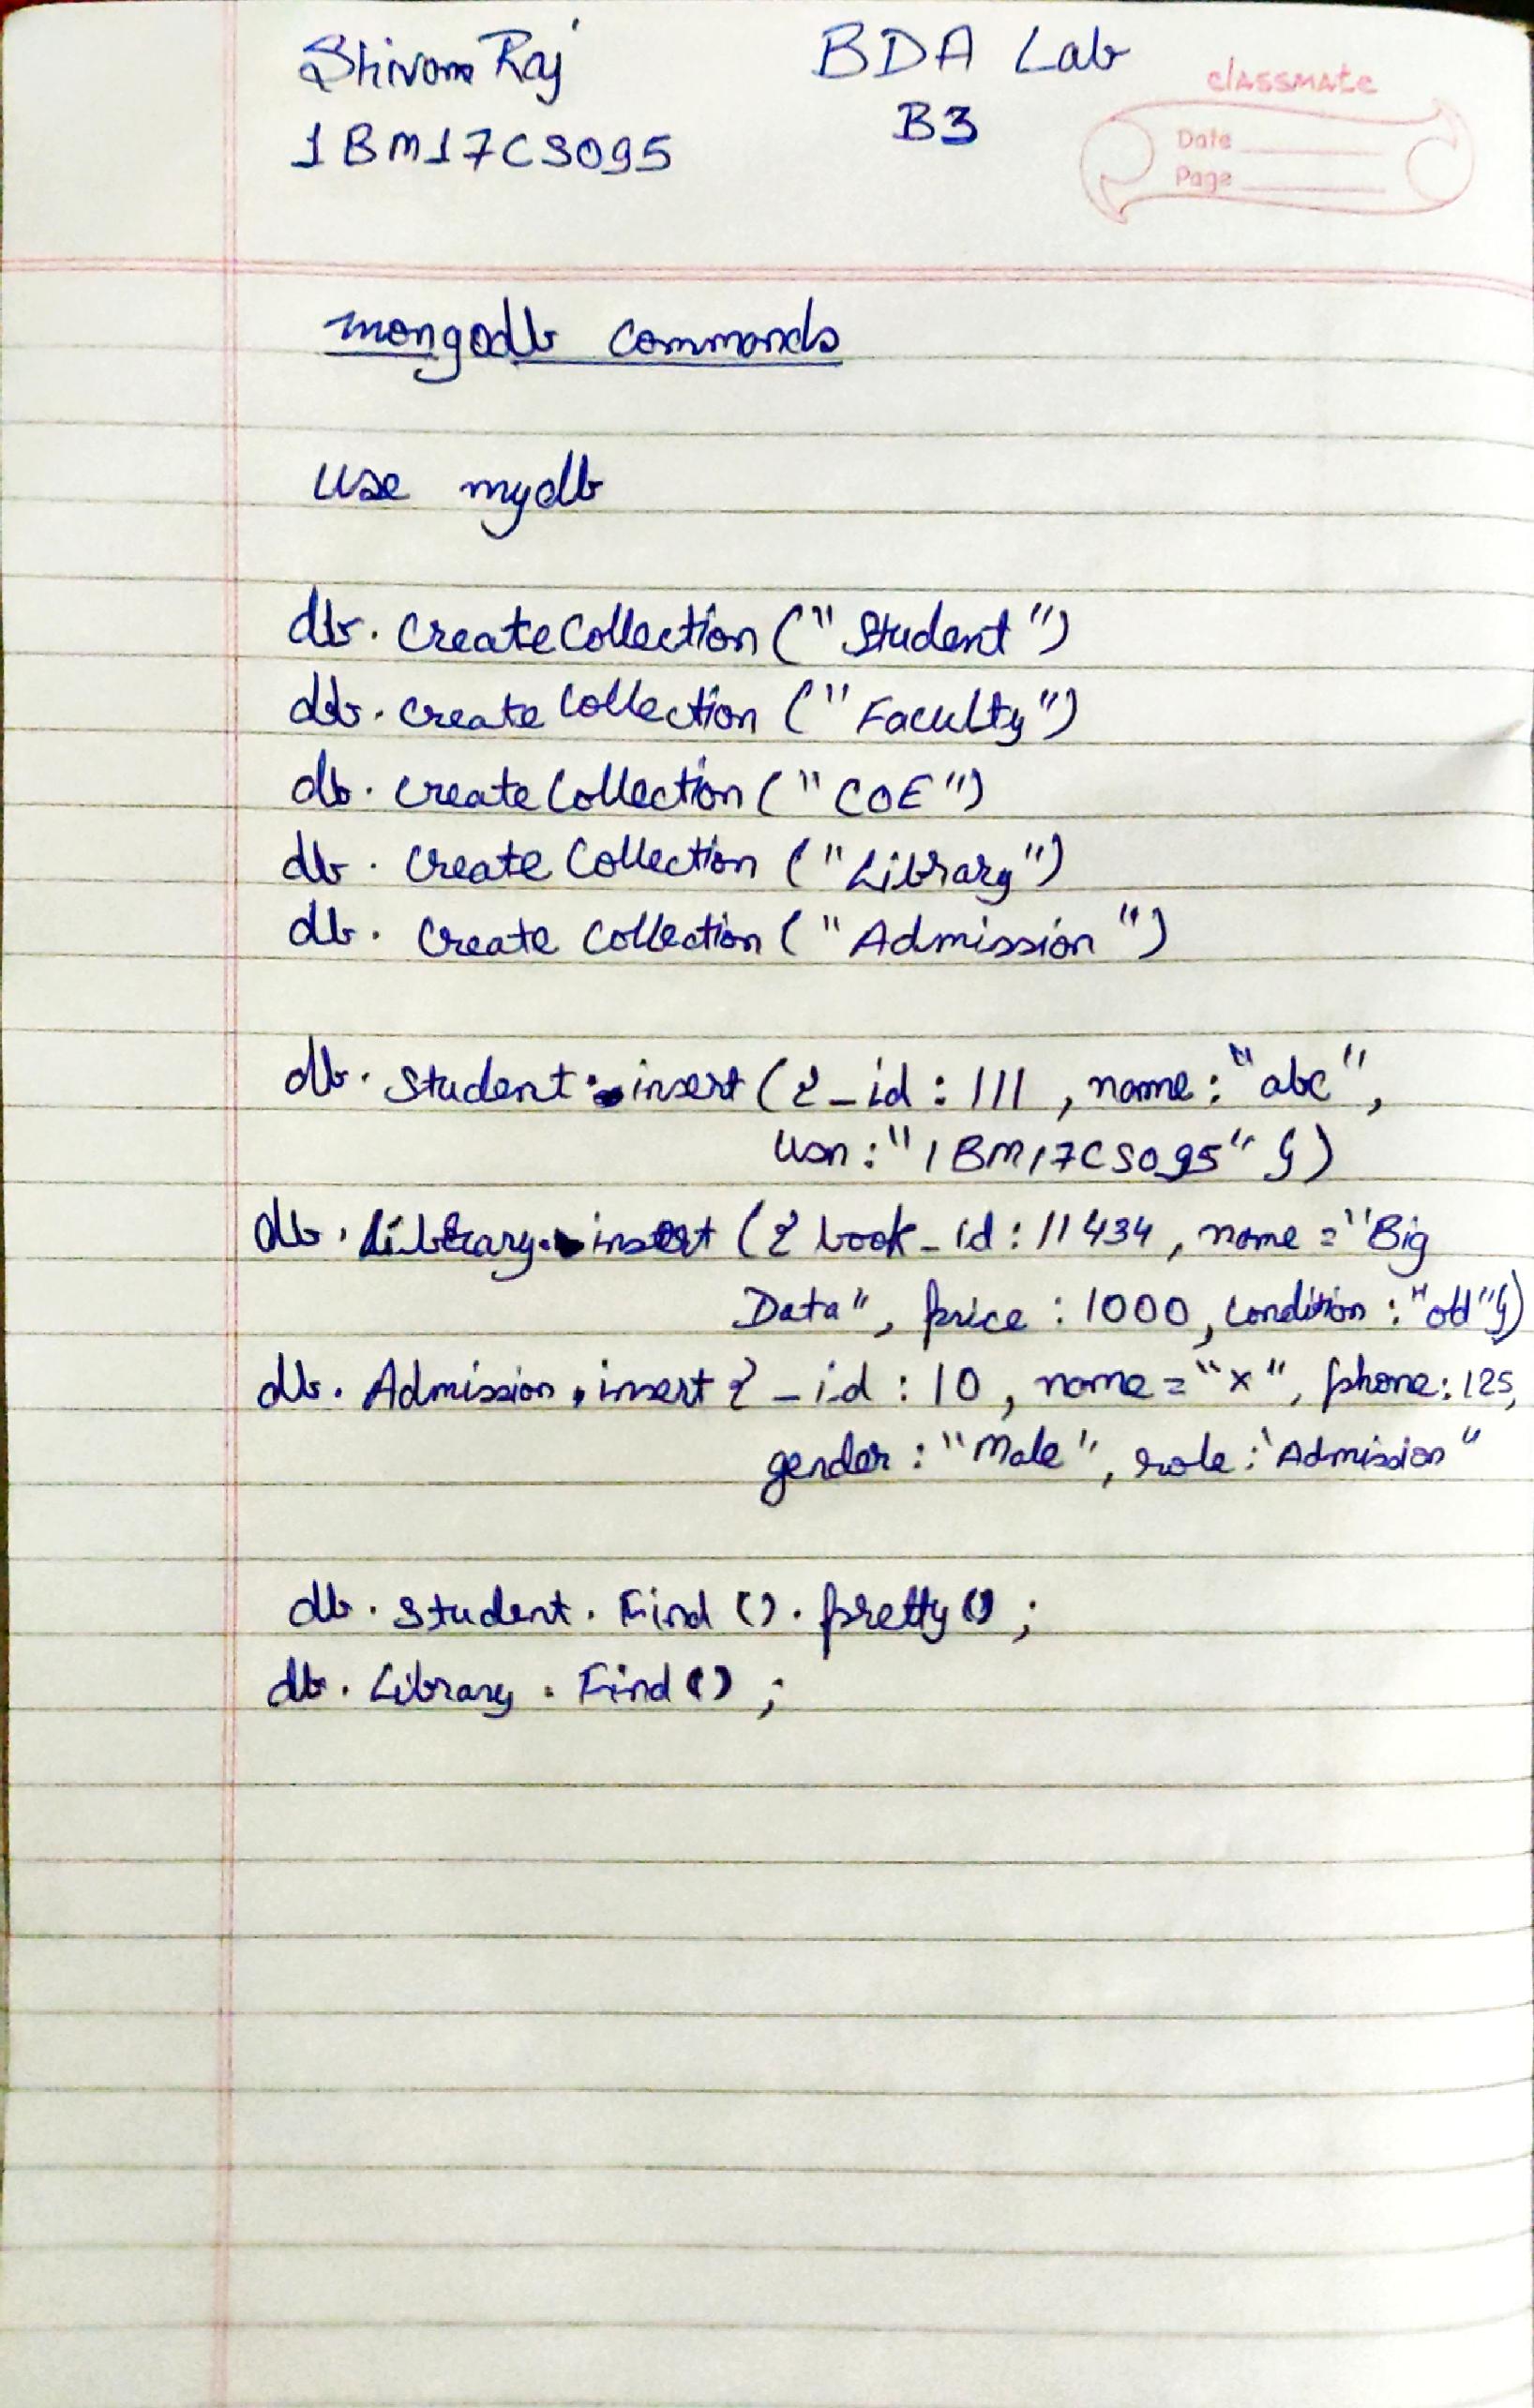 Shivam Raj BDA Lab
classmate
1BM17CS095 B3
Date
Page
mongodb commands
use mydb
db. createCollection ("Student")
db. create Collection ("Faculty")
db. createCollection ("COE")
db. Create Collection ("Library")
db. Create Collection ("Admission")
db. Student. insert ({ _id : 111 , name : "abc" ,
usn : "1BM17CS095" })
db. Library. insert ({ book_id : 11434 , name = "Big
Data" , price : 1000 , condition : "old" })
db. Admission . insert { _id : 10 , name = "x" , phone : 125,
gender : "Male" , role : 'Admission"
db. Student . Find () . pretty () ;
db. Library . Find () ;